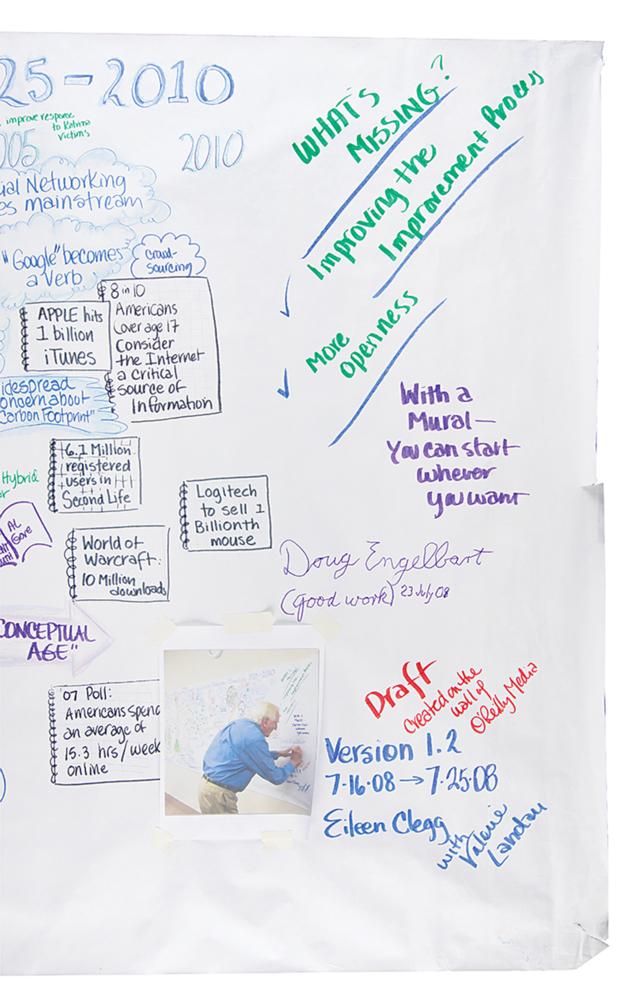 25-2010
improve response
to Katrina
Victims
005
2010
ial Networking
es mainstream
"Google" becomes
a Verb
crowd-
sourcing
APPLE hits
1 billion
iTunes
8 in 10
Americans
over age 17
Consider
the Internet
a critical
source of
Information
idespread
oncern about
Carbon Footprint"
6.1 Million
registered
users in
Second Life
Hybrid
or
AL
Gore
Logitech
to sell 1
Billionth
mouse
World of
Warcraft:
10 Million
downloads
CONCEPTUAL
AGE"
07 Poll:
Americans spend
an average of
15.3 hrs/week
online
WHAT'S
MISSING?
Improving the
Improvement Process
More
openness
With a
Mural—
You can start
wherever
you want
Doug Engelbart
(good work) 23 July 08
Draft
created on the
wall of
O'Reilly Media
Version 1.2
7-16-08 → 7-25-08
Eileen Clegg
with Valerie
Landau